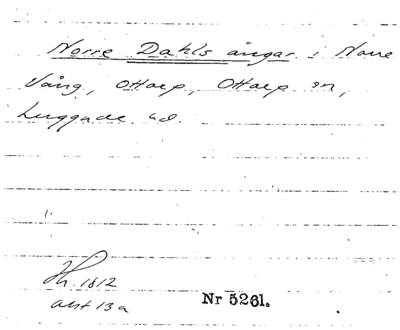 Norre Dahls ängar i Norre
Vång, Ottarp, Ottarp sn,
Luggude hd.
Hh. 1812
akt 13a
Nr 5261.